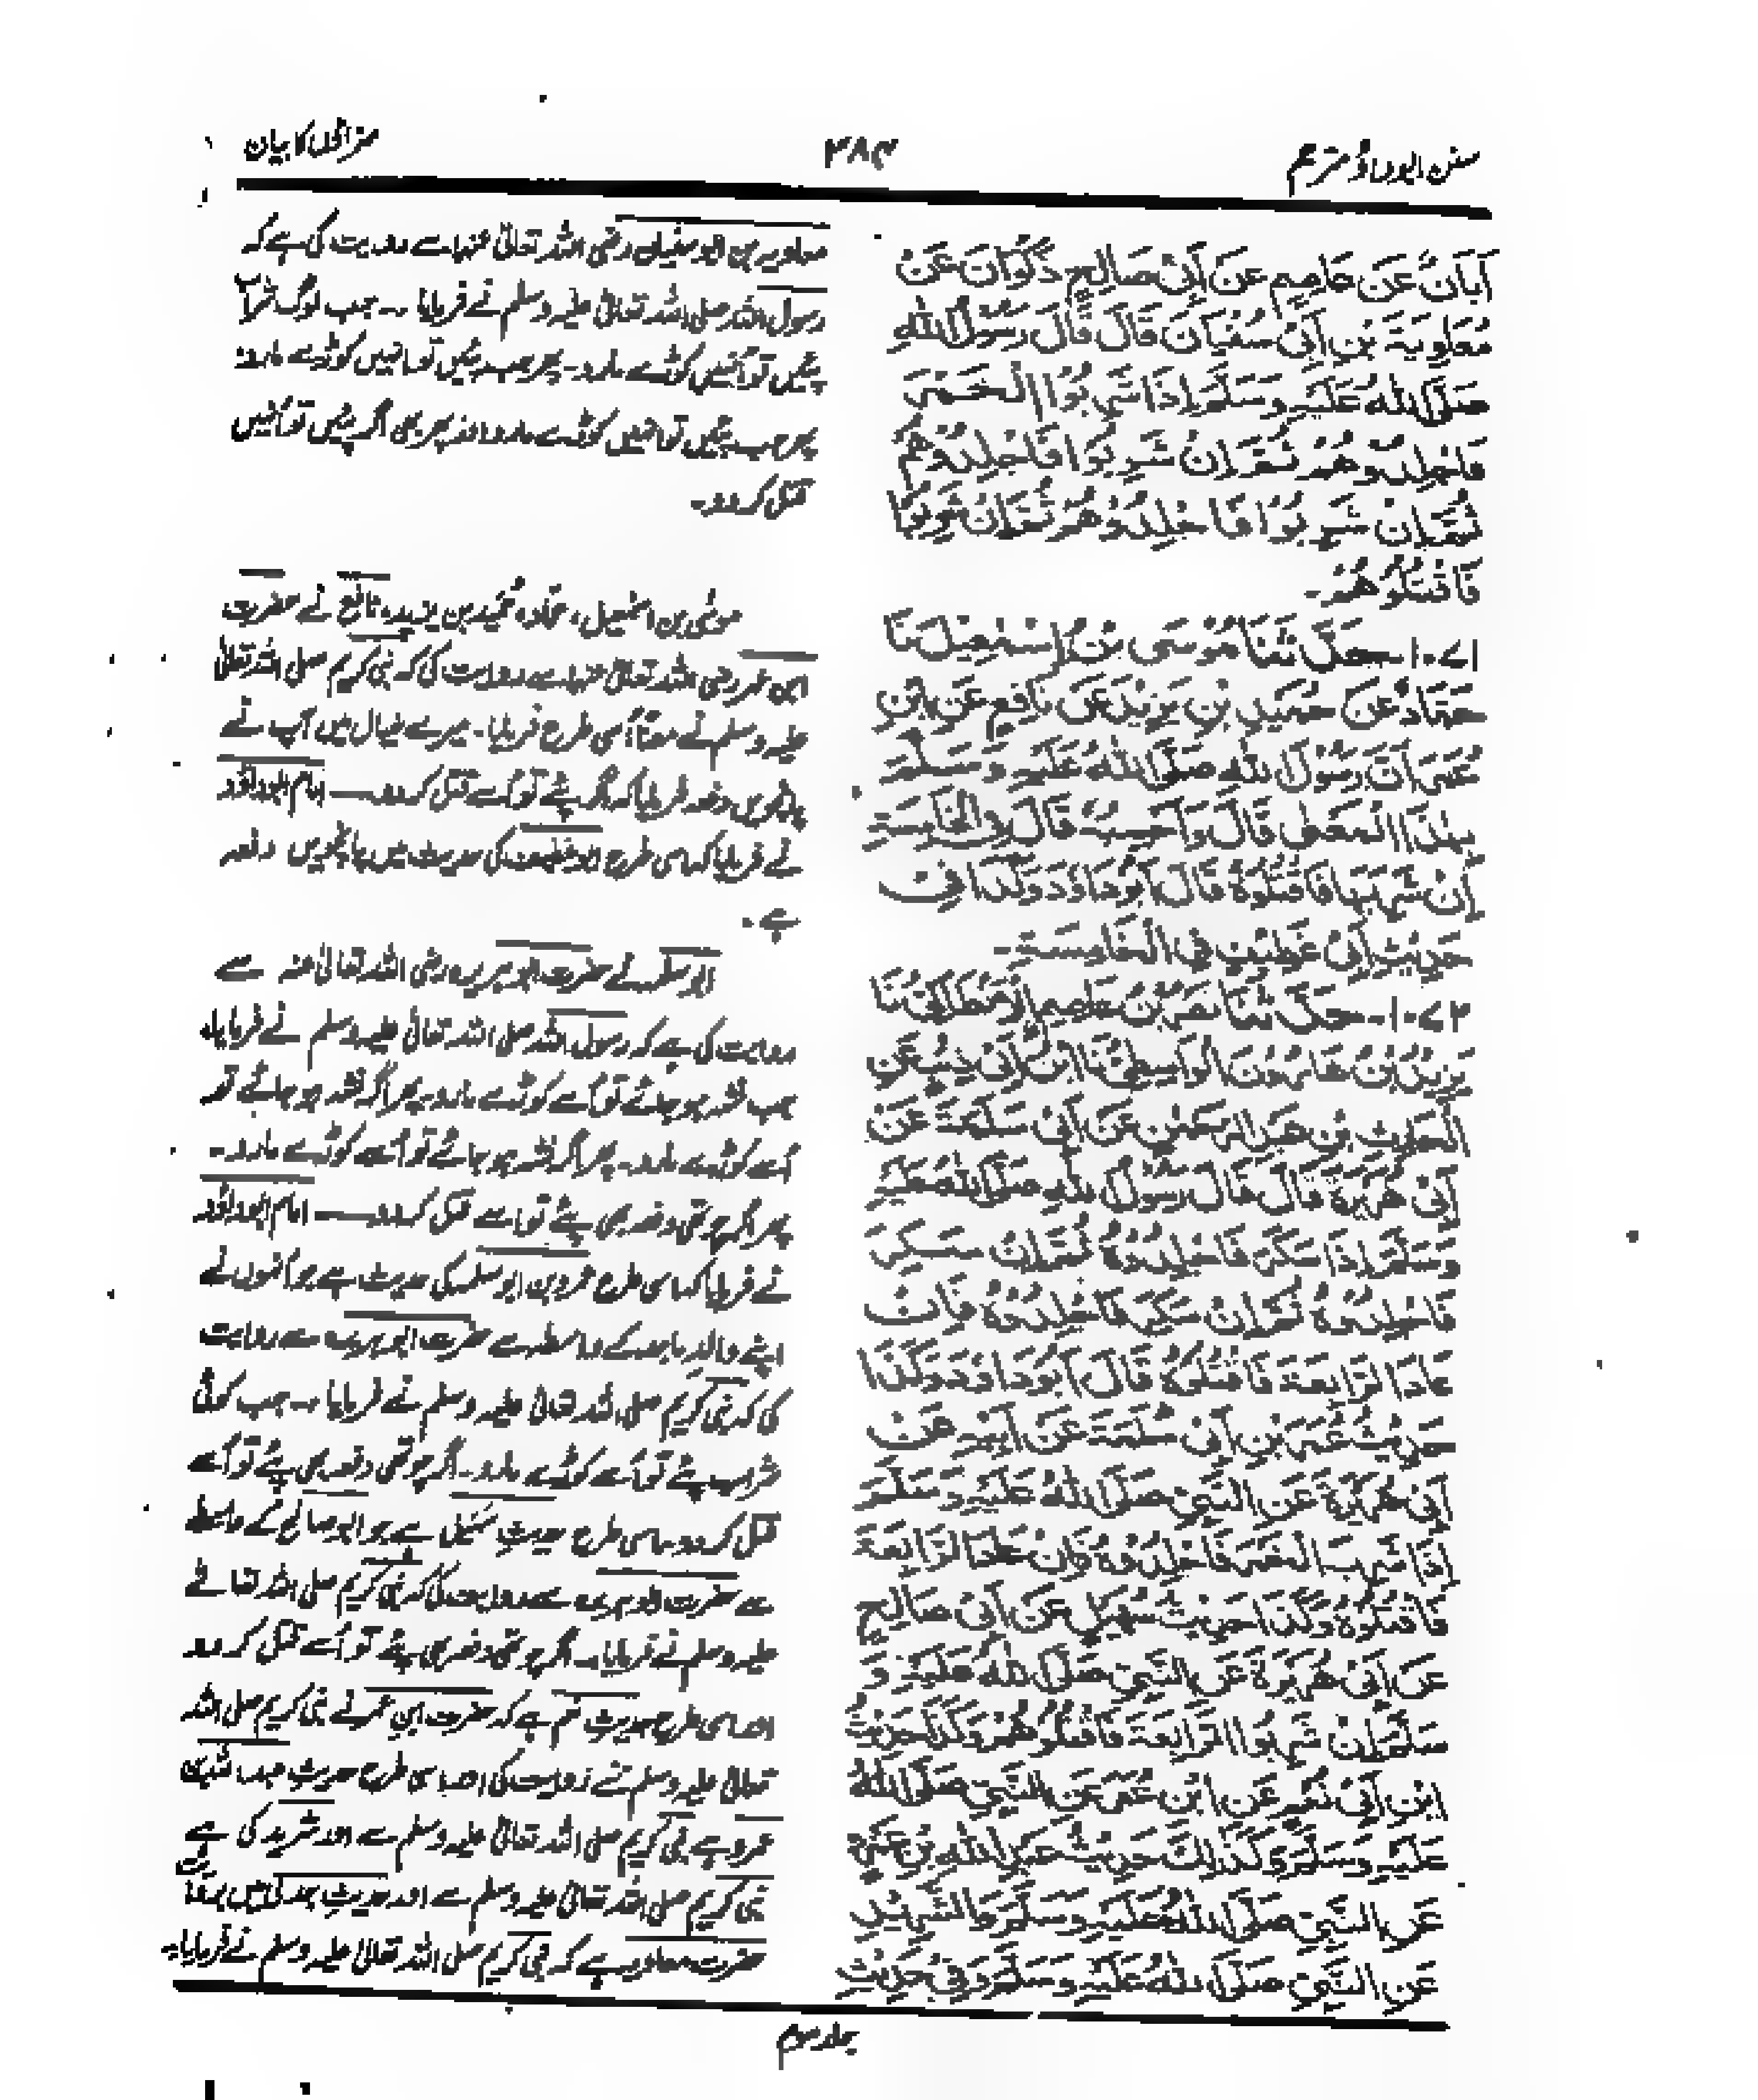 سنن ابوداؤد مترجم
۳۸۴
سزاؤں کا بیان
أَبَانٌ عَنْ عَاصِمٍ عَنْ أَبِي صَالِحٍ ذَكْوَانَ عَنْ
مُعَاوِيَةَ بْنِ أَبِي سُفْيَانَ قَالَ قَالَ رَسُوْلُ اللهِ
صَلَّى اللهُ عَلَيْهِ وَسَلَّمَ إِذَا شَرِبُوا الْخَمْرَ
فَاجْلِدُوْهُمْ ثُمَّ إِنْ شَرِبُوْا فَاجْلِدُوْهُمْ
ثُمَّ إِنْ شَرِبُوْا فَاجْلِدُوْهُمْ ثُمَّ إِنْ شَرِبُوْا
فَاقْتُلُوْهُمْ۔
۱۰۷۱۔ حَدَّثَنَا مُوْسَى بْنُ إِسْمٰعِيْلَ نَا
حَمَّادٌ عَنْ حُمَيْدِ بْنِ يَزِيْدَ عَنْ نَافِعٍ عَنِ ابْنِ
عُمَرَ أَنَّ رَسُوْلَ اللهِ صَلَّى اللهُ عَلَيْهِ وَسَلَّمَ
بِهٰذَا الْمَعْنٰى قَالَ وَأَحْسِبُهُ قَالَ فِي الْخَامِسَةِ
إِنْ شَرِبَهَا فَاقْتُلُوْهُ قَالَ أَبُوْدَاوٗدَ وَكَذَا فِي
حَدِيْثِ أَبِي غُطَيْفٍ فِي الْخَامِسَةِ۔
۱۰۷۲۔ حَدَّثَنَا نَصْرُ بْنُ عَاصِمٍ الْأَنْطَاكِيُّ نَا
يَزِيْدُ بْنُ هَارُوْنَ الْوَاسِطِيُّ نَا ابْنُ أَبِي ذِئْبٍ عَنِ
الْحَارِثِ بْنِ عَبْدِ الرَّحْمٰنِ عَنْ أَبِي سَلَمَةَ عَنْ
أَبِي هُرَيْرَةَ قَالَ قَالَ رَسُوْلُ اللهِ صَلَّى اللهُ عَلَيْهِ
وَسَلَّمَ إِذَا سَكِرَ فَاجْلِدُوْهُ ثُمَّ إِنْ سَكِرَ
فَاجْلِدُوْهُ ثُمَّ إِنْ سَكِرَ فَاجْلِدُوْهُ فَإِنْ
عَادَ الرَّابِعَةَ فَاقْتُلُوْهُ قَالَ أَبُوْدَاوٗدَ وَكَذَا
حَدِيْثُ عُمَرَ بْنِ أَبِي سَلَمَةَ عَنْ أَبِيْهِ عَنْ
أَبِي هُرَيْرَةَ عَنِ النَّبِيِّ صَلَّى اللهُ عَلَيْهِ وَسَلَّمَ
إِذَا شَرِبَ الْخَمْرَ فَاجْلِدُوْهُ فَإِنْ عَادَ الرَّابِعَةَ
فَاقْتُلُوْهُ وَكَذَا حَدِيْثُ سُهَيْلٍ عَنْ أَبِي صَالِحٍ
عَنْ أَبِي هُرَيْرَةَ عَنِ النَّبِيِّ صَلَّى اللهُ عَلَيْهِ وَ
سَلَّمَ إِنْ شَرِبُوا الرَّابِعَةَ فَاقْتُلُوْهُمْ وَكَذَا حَدِيْثُ
ابْنِ أَبِي نُعْمٍ عَنِ ابْنِ عُمَرَ عَنِ النَّبِيِّ صَلَّى اللهُ
عَلَيْهِ وَسَلَّمَ وَكَذٰلِكَ حَدِيْثُ عَبْدِ اللهِ بْنِ عَمْرٍو
عَنِ النَّبِيِّ صَلَّى اللهُ عَلَيْهِ وَسَلَّمَ وَالشَّرِيْدِ
عَنِ النَّبِيِّ صَلَّى اللهُ عَلَيْهِ وَسَلَّمَ وَفِي حَدِيْثِ
معاویہ بن ابوسفیان رضی اللہ تعالیٰ عنہما سے روایت کی ہے کہ
رسول اللہ صلی اللہ تعالیٰ علیہ وسلم نے فرمایا ۔۔ جب لوگ شراب
پئیں تو اُنہیں کوڑے مارو۔ پھر جب پئیں تو انہیں کوڑے مارو۔
پھر جب پئیں تو انہیں کوڑے مارو اور پھر بھی اگر پئیں تو اُنہیں
قتل کر دو۔
موسیٰ بن اسمٰعیل، حماد، حُمید بن یزید، نافع نے حضرت
ابن عمر رضی اللہ تعالیٰ عنہما سے روایت کی کہ نبی کریم صلی اللہ تعالیٰ
علیہ وسلم نے معناً اسی طرح فرمایا۔ میرے خیال میں آپ نے
پانچویں دفعہ فرمایا کہ اگر پئے تو اُسے قتل کر دو ـــــ امام ابوداؤد
نے فرمایا کہ اسی طرح ابوغطیف کی حدیث میں پانچویں دفعہ
ہے۔
ابو سلمہ نے حضرت ابوہریرہ رضی اللہ تعالیٰ عنہ سے
روایت کی ہے کہ رسول اللہ صلی اللہ تعالیٰ علیہ وسلم نے فرمایا۔
جب نشہ ہو جائے تو اُسے کوڑے مارو۔ پھر اگر نشہ ہو جائے تو
اُسے کوڑے مارو۔ پھر اگر نشہ ہو جائے تو اُسے کوڑے مارو۔
پھر اگر چوتھی دفعہ بھی پئے تو اسے قتل کر دو ـــــ امام ابوداؤد
نے فرمایا کہ اسی طرح عمرو بن ابو سلمہ کی حدیث ہے جو اُنہوں نے
اپنے والد ماجد کے واسطہ سے حضرت ابوہریرہ سے روایت
کی کہ نبی کریم صلی اللہ تعالیٰ علیہ وسلم نے فرمایا ۔۔ جب کوئی
شراب پئے تو اُسے کوڑے مارو۔ اگر چوتھی دفعہ بھی پئے تو اُسے
قتل کر دو۔ اسی طرح حدیثِ سہیل ہے جو ابو صالح کے واسطے
سے حضرت ابوہریرہ سے روایت کی کہ نبی کریم صلی اللہ تعالےٰ
علیہ وسلم نے فرمایا ۔۔ اگر چوتھی دفعہ بھی پئے تو اُسے قتل کر دو
اور اسی طرح حدیثِ نعم ہے کہ حضرت ابنِ عمر نے نبی کریم صلی اللہ
تعالیٰ علیہ وسلم نے روایت کی اور اسی طرح حدیثِ عبداللہ بن
عمرو ہے نبی کریم صلی اللہ تعالیٰ علیہ وسلم سے اور شرید کی ہے
نبی کریم صلی اللہ تعالیٰ علیہ وسلم سے اور حدیثِ جدلی میں بروایت
حضرت معاویہ ہے کہ نبی کریم صلی اللہ تعالیٰ علیہ وسلم نے فرمایا۔
جلد سوم